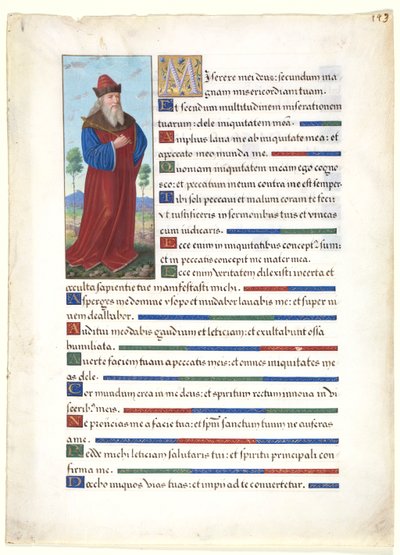 193
Miserere mei deus: secundum ma
gnam misericordiam tuam.
Et secundum multitudinem miserationem
tuarum: dele iniquitatem mea.
Amplius lava me ab iniquitate mea: et
a peccato meo munda me.
Quoniam iniquitatem meam ego cogno
sco: et peccatum meum contra me est semper.
Tibi soli peccavi et malum coram te feci:
ut iustificeris in sermonibus tuis et vincas
cum iudicaris.
Ecce enim in iniquitatibus concept9 sum:
et in peccatis concepit me mater mea.
Ecce enim veritatem dilexisti incerta et
occulta sapientie tue manifestasti michi.
Asperges me domine ysopo et mundabor lavabis me: et super ni
vem dealbabor.
Auditui meo dabis gaudium et leticiam: et exultabunt ossa
humiliata.
Averte faciem tuam a peccatis meis: et omnes iniquitates me
as dele.
Cor mundum crea in me deus: et spiritum rectum innova in vi
sceribus meis.
Ne proiicias me a facie tua: et spm sanctum tuum ne auferas
a me.
Redde michi leticiam salutaris tui: et spiritu principali con
firma me.
Docebo iniquos vias tuas: et impii ad te convertetur.